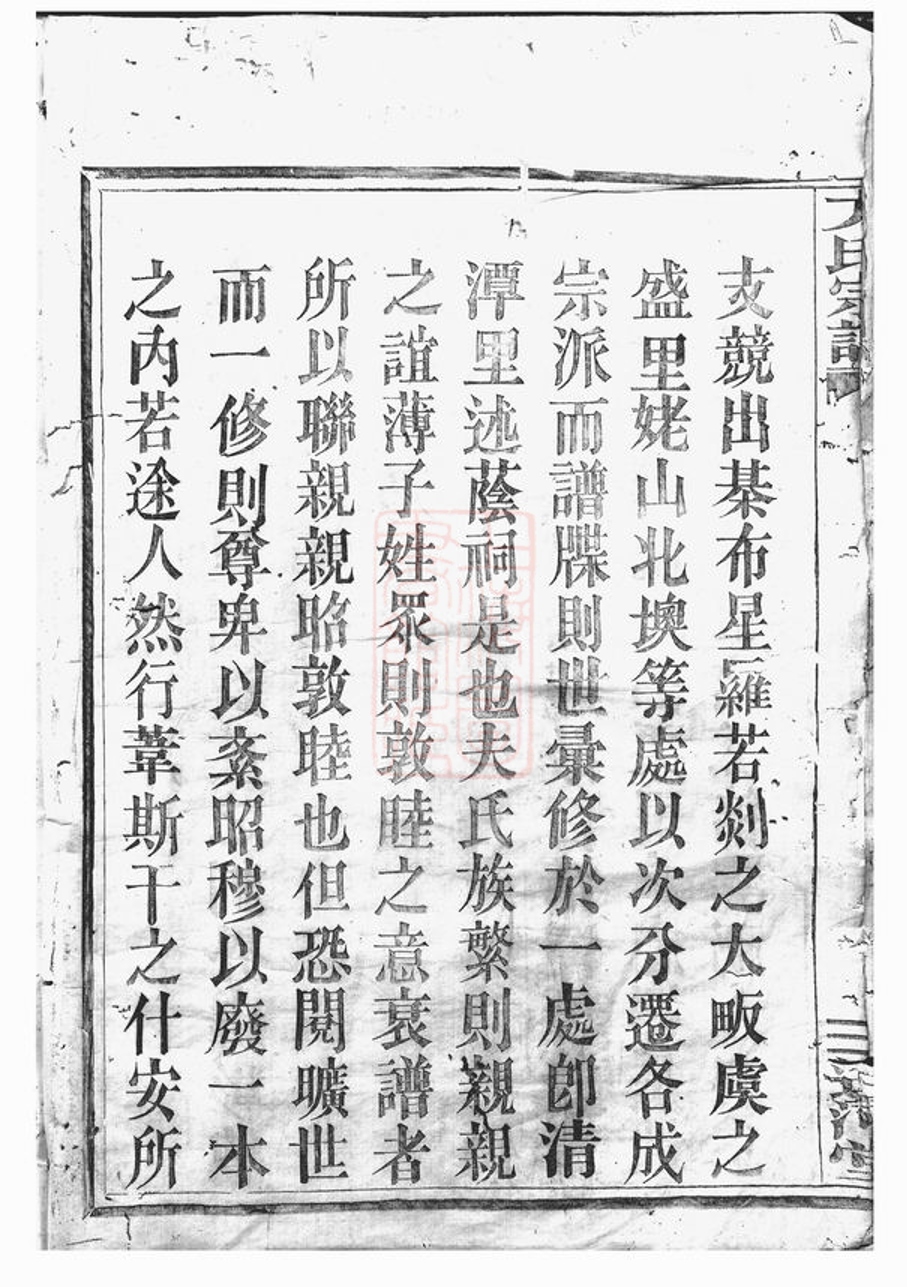 氏宗譜
三
支競出棊布星羅若剡之大畈虞之
盛里姥山北墺等處以次分遷各成
宗派而譜牒則世彙修於一處卽清
潭里述蔭祠是也夫氏族繁則親親
之誼薄子姓眾則敦睦之意衰譜者
所以聯親親昭敦睦也但恐閱曠世
而一修則尊卑以紊昭穆以廢一本
之內若途人然行葦斯干之什安所